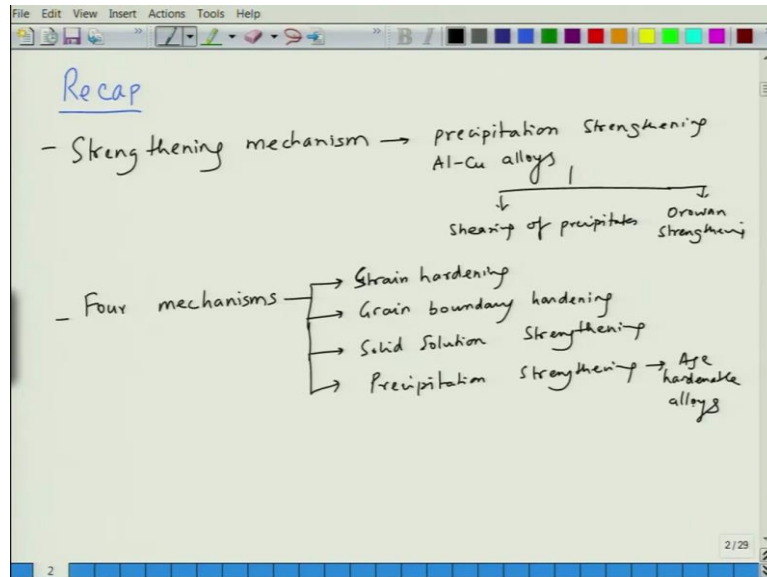 File Edit View Insert Actions Tools Help
Recap
- Strengthening mechanism → precipitation Strengthening
Al-Cu alloys
Shearing of precipitates Orowan Strengthening
- Four mechanisms → Strain hardening
→ Grain boundary hardening
→ Solid Solution Strengthening
→ Precipitation Strengthening → Age hardenable alloys
2/29
2